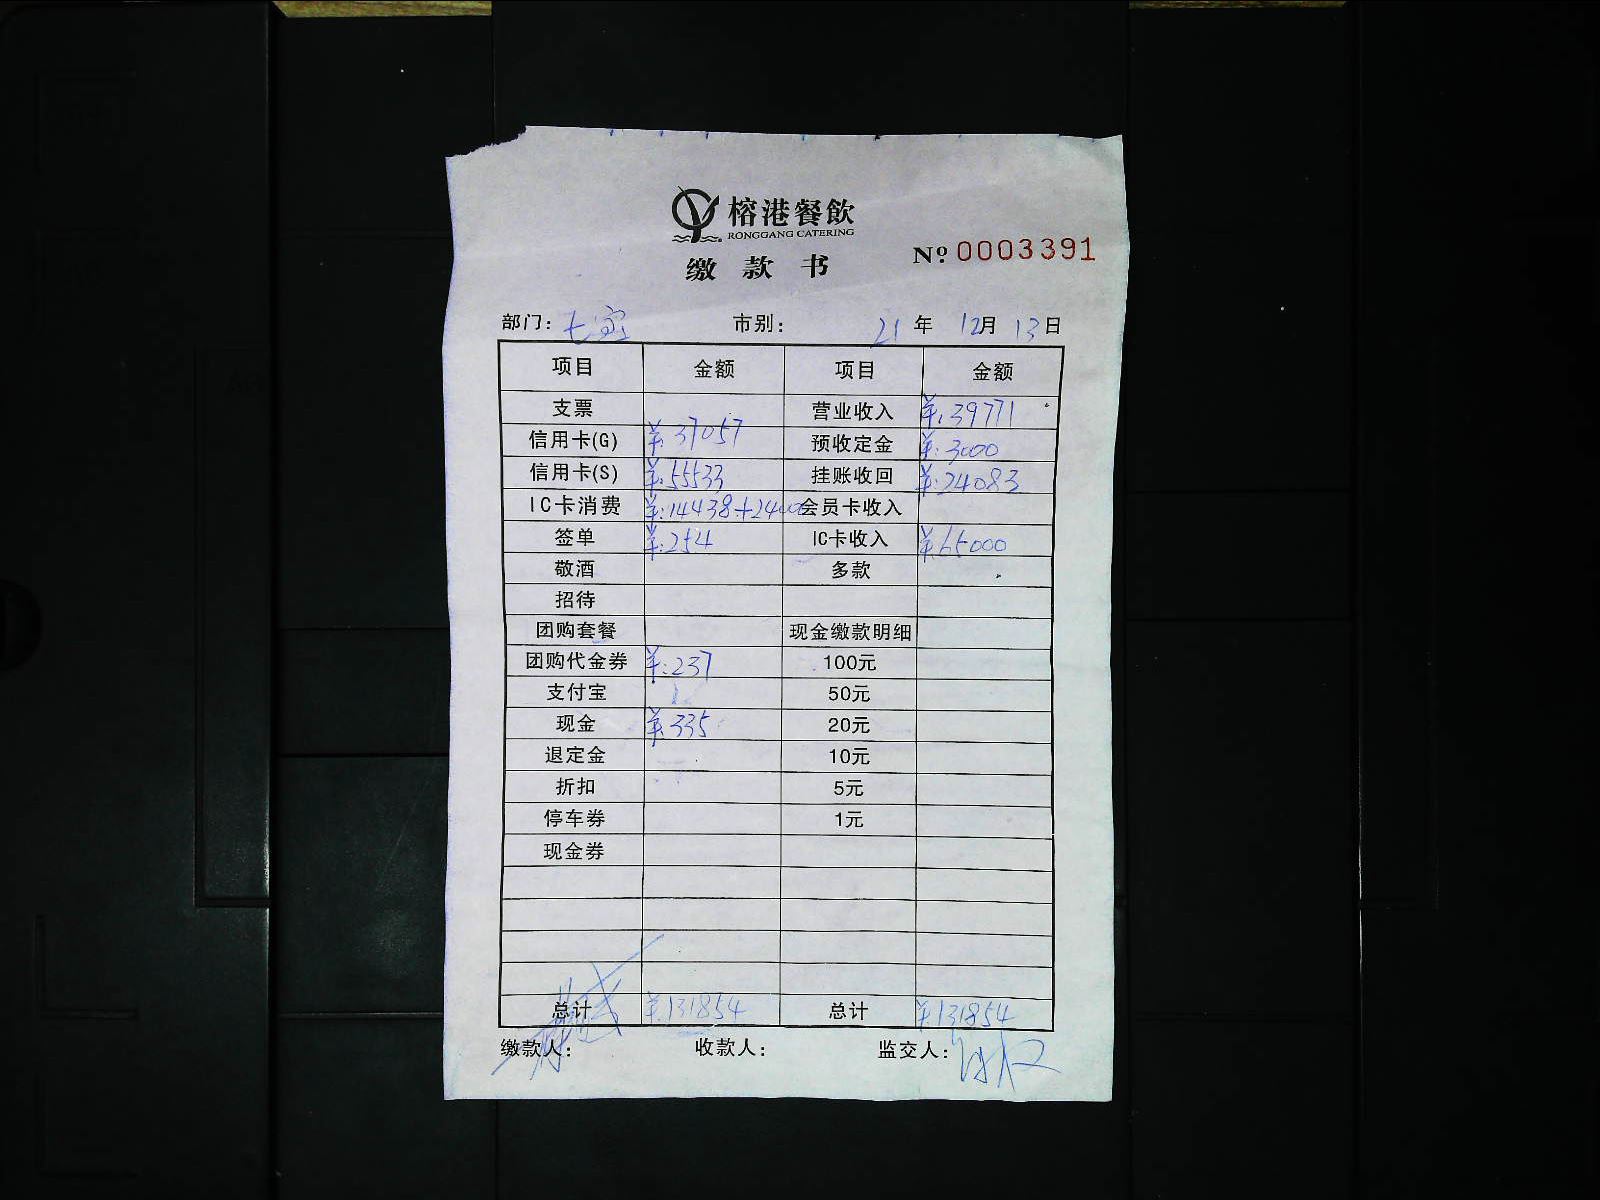 榕港餐飲
RONGGANG CATERING
缴款书
№ 0003391
部门: 七宝 市别: 21年 12月 13日
项目 金额 项目 金额
支票 营业收入 ¥:39771
信用卡(G) ¥:37057 预收定金 ¥:3000
信用卡(S) ¥:55533 挂账收回 ¥:24083
IC卡消费 ¥:14438+24000 会员卡收入
签单 ¥:254 IC卡收入 ¥:65000
敬酒 多款
招待
团购套餐 现金缴款明细
团购代金券 ¥:237 100元
支付宝 50元
现金 ¥:335 20元
退定金 10元
折扣 5元
停车券 1元
现金券
总计 ¥:131854 总计 ¥:131854
缴款人: 收款人: 监交人: